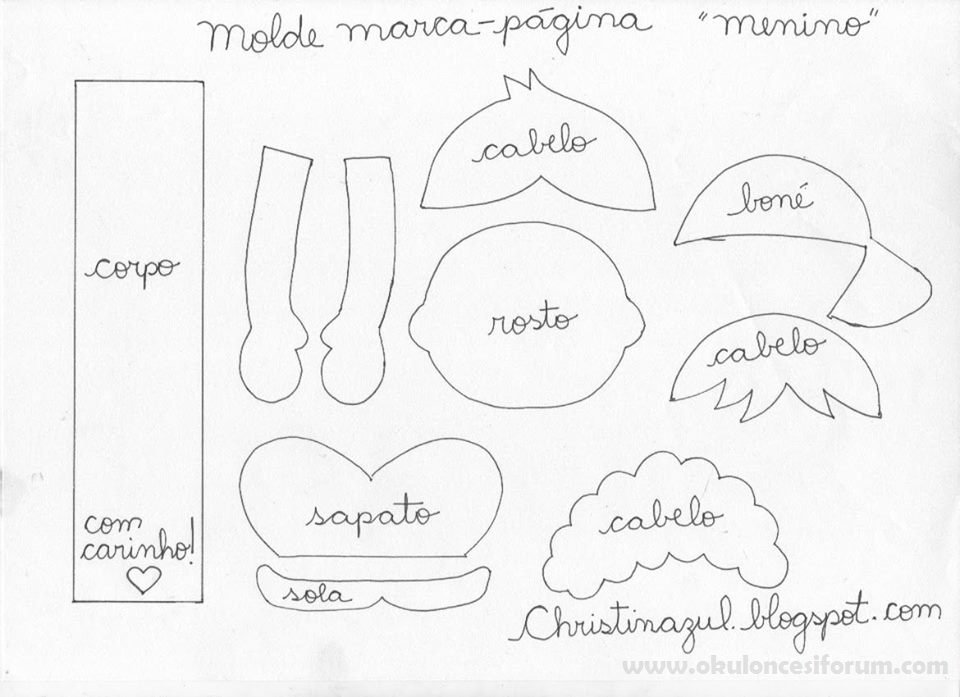 Molde marca-página "menino"
cabelo
boné
corpo
rosto
cabelo
sapato
cabelo
com
carinho!
sola
Christinazul.blogspot.com
www.okuloncesiforum.com